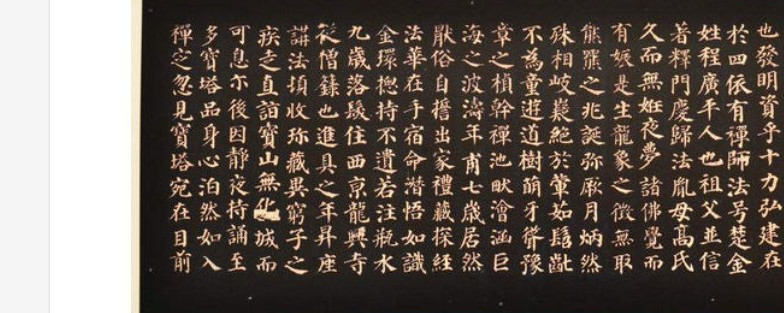 也發明資乎十力弘建在
於四依有禪師法号楚金
姓程廣平人也祖父並信
著釋門慶歸法胤母高氏
久而無妊夜夢諸佛覺而
有娠是生龍象之徵無取
熊羆之兆誕弥厥月炳然
殊相岐嶷絶於葷茹髫齔
不為童遊道樹萌牙聳豫
章之楨幹禪池畎澮涵巨
海之波濤年甫七歲居然
厭俗自誓出家禮藏探經
法華在手宿命潛悟如識
金環揔持不遺若注瓶水
九歲落髮住西京龍興寺
從僧籙也進具之年昇座
講法頓收珎藏異窮子之
疾走直詣寶山無化城而
可息尒後因靜夜持誦至
多寶塔品身心泊然如入
禪定忽見寶塔宛在目前